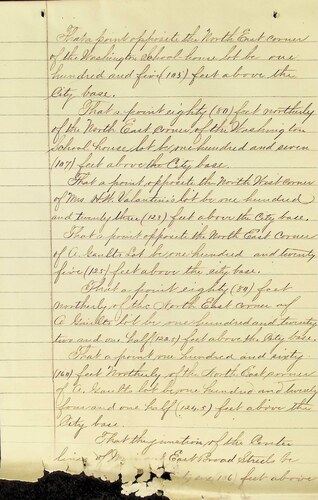 That a point opposite the North East corner
of the Washington School house lot be one
hundred and five (105) feet above the
City base.
That a point eighty (80) feet northerly
of the North East corner of the Washington
School house lot be one hundred and seven
(107) feet above the City base.
That a point opposite the North West corner
of Mrs H.W. Valantine's lot be one hundred
and twenty three (123) feet above the City base.
That a point opposite the North East Corner
of A. Gaults Lot be one hundred and twenty
five (125) feet above the city base.
That a point eighty (80) feet
northerly of the North East corner of
A Gaults lot be one hundred and twenty
two and one half (122.5) feet above the City base.
That a point one hundred and sixty
(160) feet Northerly of the North East corner
of A. Gaults lot be one hundred and twenty
four and one half (124.5) feet above the
City base.
That the junction of the Center
lines of and East Broad Streets be
feet above